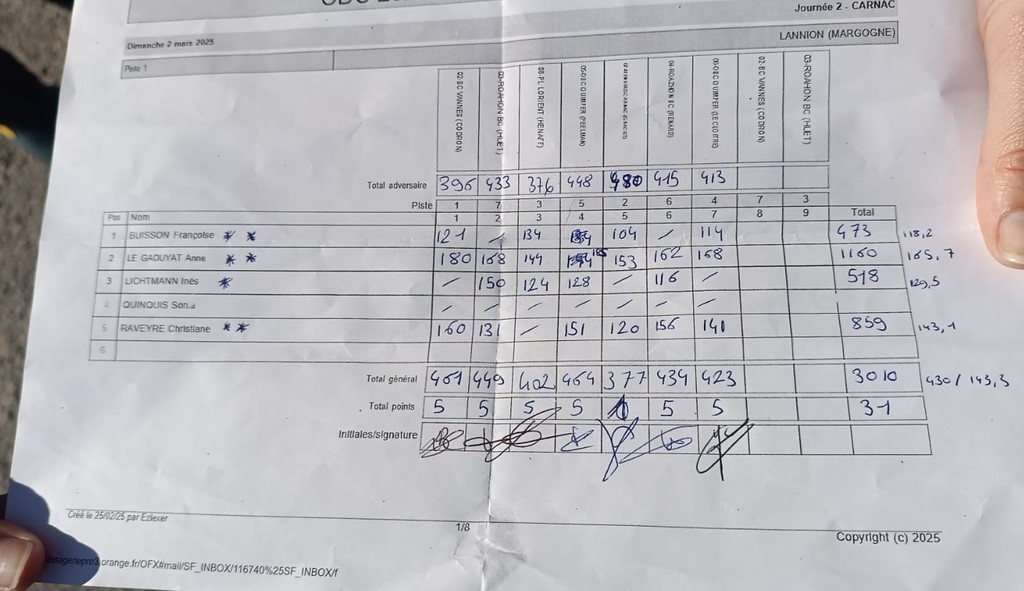 Journée 2 - CARNAC
Dimanche 2 mars 2025
LANNION (MARGOGNE)
Piste 1
02-BC VANNES (CODRON) 03-ROAHON BC (HUET) 08-PL LORIENT (HENAFF) 05-OBC QUIMPER (PEELMAN) 04-ROAZHON BC (RENARD) 06-OBC QUIMPER (LECLOITRE) 02-BC VANNES (CODRON) 03-ROAHON BC (HUET)
Total adversaire 396 433 376 448 480 415 413
Piste 1 7 3 5 2 6 4 7 3
Pos Nom 1 2 3 4 5 6 7 8 9 Total
1 BUISSON Françoise * * 121 / 134 104 / 114 473 118,2
2 LE GAOUYAT Anne * * 180 168 144 185 153 162 168 1160 165,7
3 LICHTMANN Inès * / 150 124 128 / 116 / 518 129,5
4 QUINQUIS / / / / / / /
5 RAVEYRE Christiane * * 160 131 / 151 120 156 141 859 143,1
6
Total général 461 449 402 464 377 434 423 3010 430 / 143,3
Total points 5 5 5 5 1 5 5 31
Initiales/signature
Créé le 25/02/25 par Ezlexer
1/8
Copyright (c) 2025
.orange.fr/OFX#mail/SF_INBOX/116740%25SF_INBOX/f